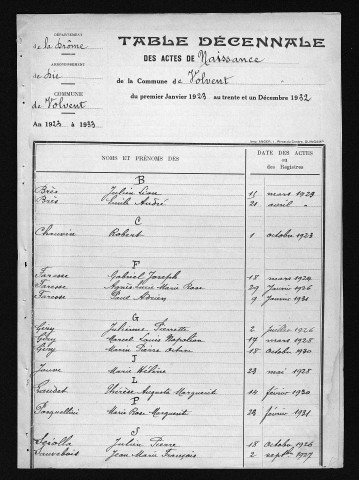 DÉPARTEMENT
de la Drôme
ARRONDISSEMENT
de Die
COMMUNE
de Volvent
An 1923 à 1933
TABLE DÉCENNALE
DES ACTES DE Naissance
de la Commune de Volvent
du premier Janvier 1923 au trente et un Décembre 1932
NOMS ET PRÉNOMS DES
DATE DES ACTES
ou
des Registres
B
Brès Julien Léon 15 mars 1923
Brès Emile André 21 avril "
C
Chauvin Robert 1 octobre 1923
F
Farosse Gabriel Joseph 18 mars 1924
Farosse Agnès Lucie Marie Rose 29 Janvier 1926
Farosse Paul Adrien 9 Janvier 1931
G
Gény Julienne Pierrette 2 Juillet 1926
Gény Marcel Louis Napoléon 17 mars 1928
Gény Pierre 18 Octobre 1930
J
Jouve Marie Hélène 23 mai 1928
L
Laudet Thérèse Augusta Marguerite 14 février 1930
P
Pasquellini Marie Rose Marguerite 23 février 1931
S
Julien Pierre 18 Octobre 1926
Sauvebois Jean Marie François 2 septbre 1927